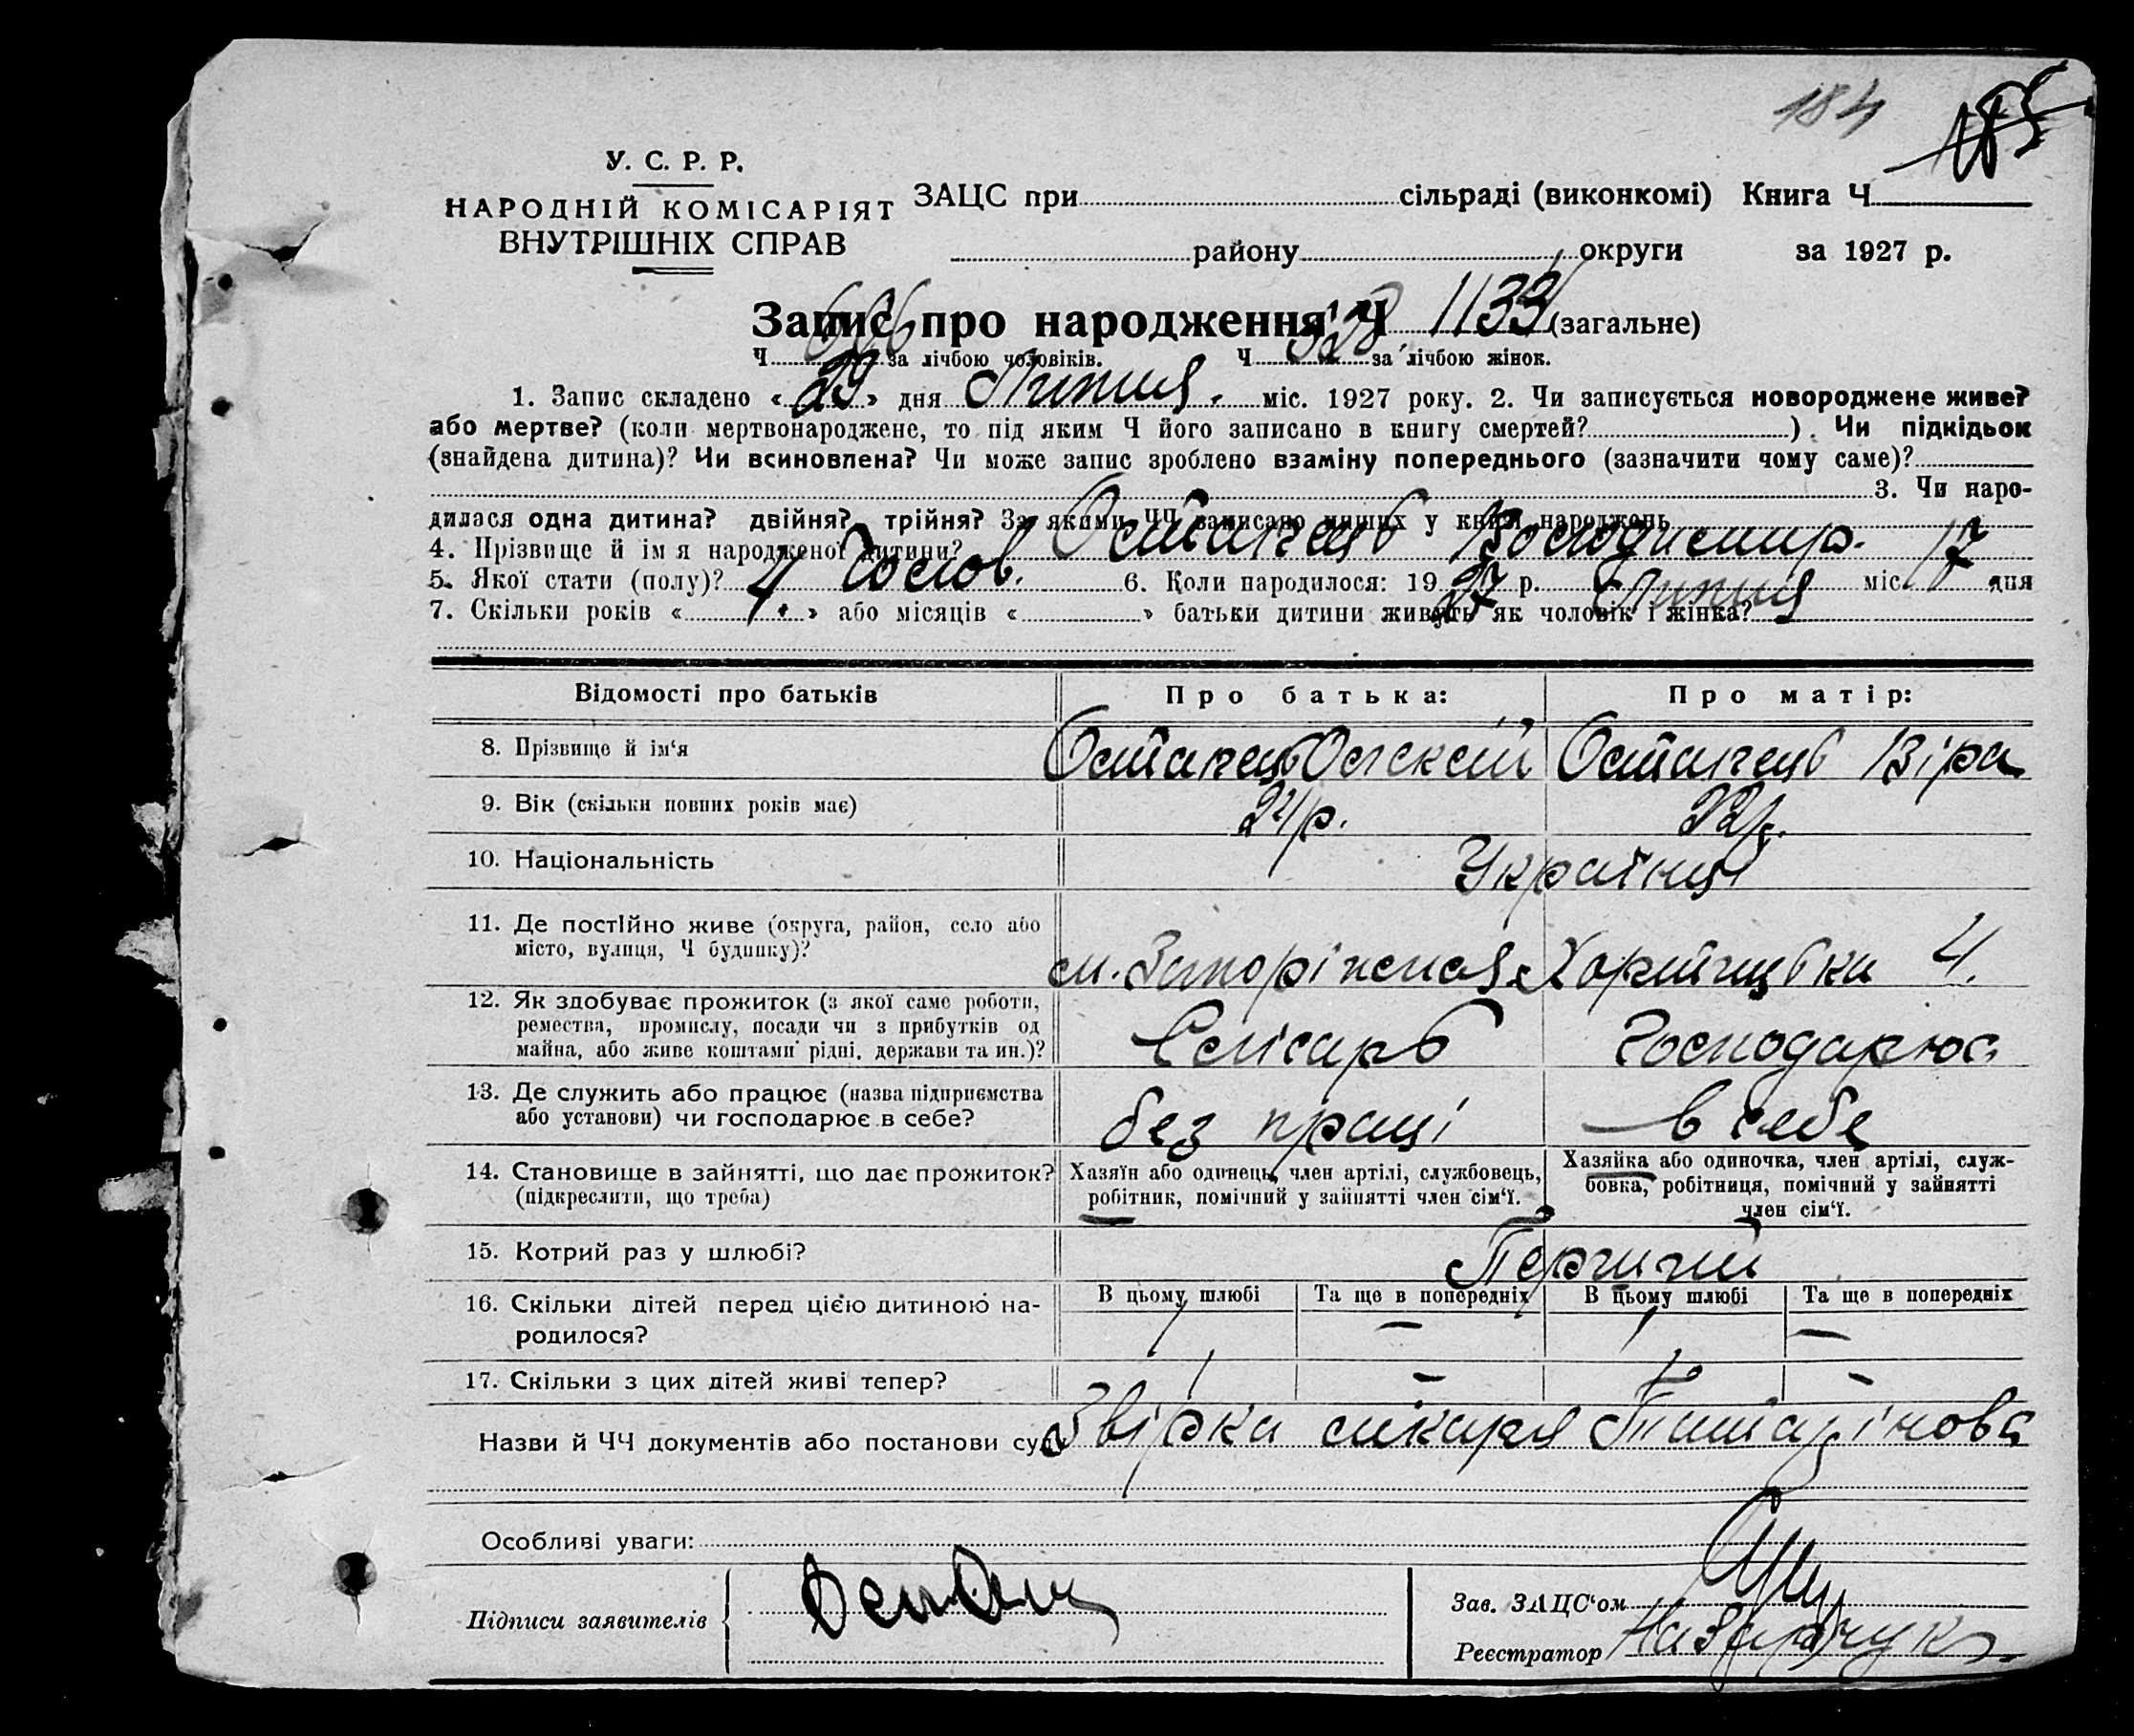 184
185
У. С. Р. Р.
НАРОДНІЙ КОМІСАРІЯТ
ВНУТРІШНІХ СПРАВ
ЗАЦС при сільраді (виконкомі) Книга Ч
району округи за 1927 р.
Запис про народження Ч 1133 (загальне)
Ч 606 за лічбою чоловіків. Ч 528 за лічбою жінок.
1. Запис складено « 29 » дня Липня. міс. 1927 року. 2. Чи записується новороджене живе?
або мертве? (коли мертвонароджене, то під яким Ч його записано в книгу смертей? ). Чи підкідьок
(знайдена дитина)? Чи всиновлена? Чи може запис зроблено взаміну попереднього (зазначити чому саме)?
3. Чи наро-
дилася одна дитина? двійня? трійня? За якими ЧЧ записано инших у книзі народжень
4. Прізвище й ім я народженої дитини? Остапець Володимир.
5. Якої стати (полу)? Чолов. 6. Коли народилося: 19 27 р. Липня міс. 17 дня
7. Скільки років « 4 » або місяців « » батьки дитини живуть як чоловік і жінка?
Відомості про батьків Про батька: Про матір:
8. Прізвище й ім'я Остапець Олексій Остапець Віра
9. Вік (скільки повних років має) 24 р. 22 р.
10. Національність Українці
11. Де постійно живе (округа, район, село або
місто, вулиця, Ч будинку)?
м. Запоріжжя Хортицька 4.
12. Як здобуває прожиток (з якої саме роботи,
ремества, промислу, посади чи з прибутків од
майна, або живе коштами рідні, держави та ин.)?
Слюсарь Господарює
13. Де служить або працює (назва підприємства
або установи) чи господарює в себе?
без праці в себе
14. Становище в зайнятті, що дає прожиток?
(підкреслити, що треба)
Хазяїн або одинець, член артілі, службовець,
робітник, помічний у зайнятті член сім'ї.
Хазяйка або одиночка, член артілі, служ-
бовка, робітниця, помічний у зайнятті
член сім'ї.
15. Котрий раз у шлюбі? Перший
16. Скільки дітей перед цією дитиною на-
родилося?
В цьому шлюбі Та ще в попередніх В цьому шлюбі Та ще в попередніх
1 — 1 —
17. Скільки з цих дітей живі тепер? 1 — 1 —
Назви й ЧЧ документів або постанови суда Звірка лікаря
Особливі уваги:
Підписи заявителів
Зав. ЗАЦС'ом
Реєстратор Назарчук